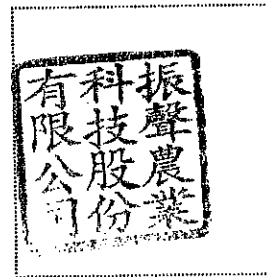 振聲農業
科技股份
有限公司